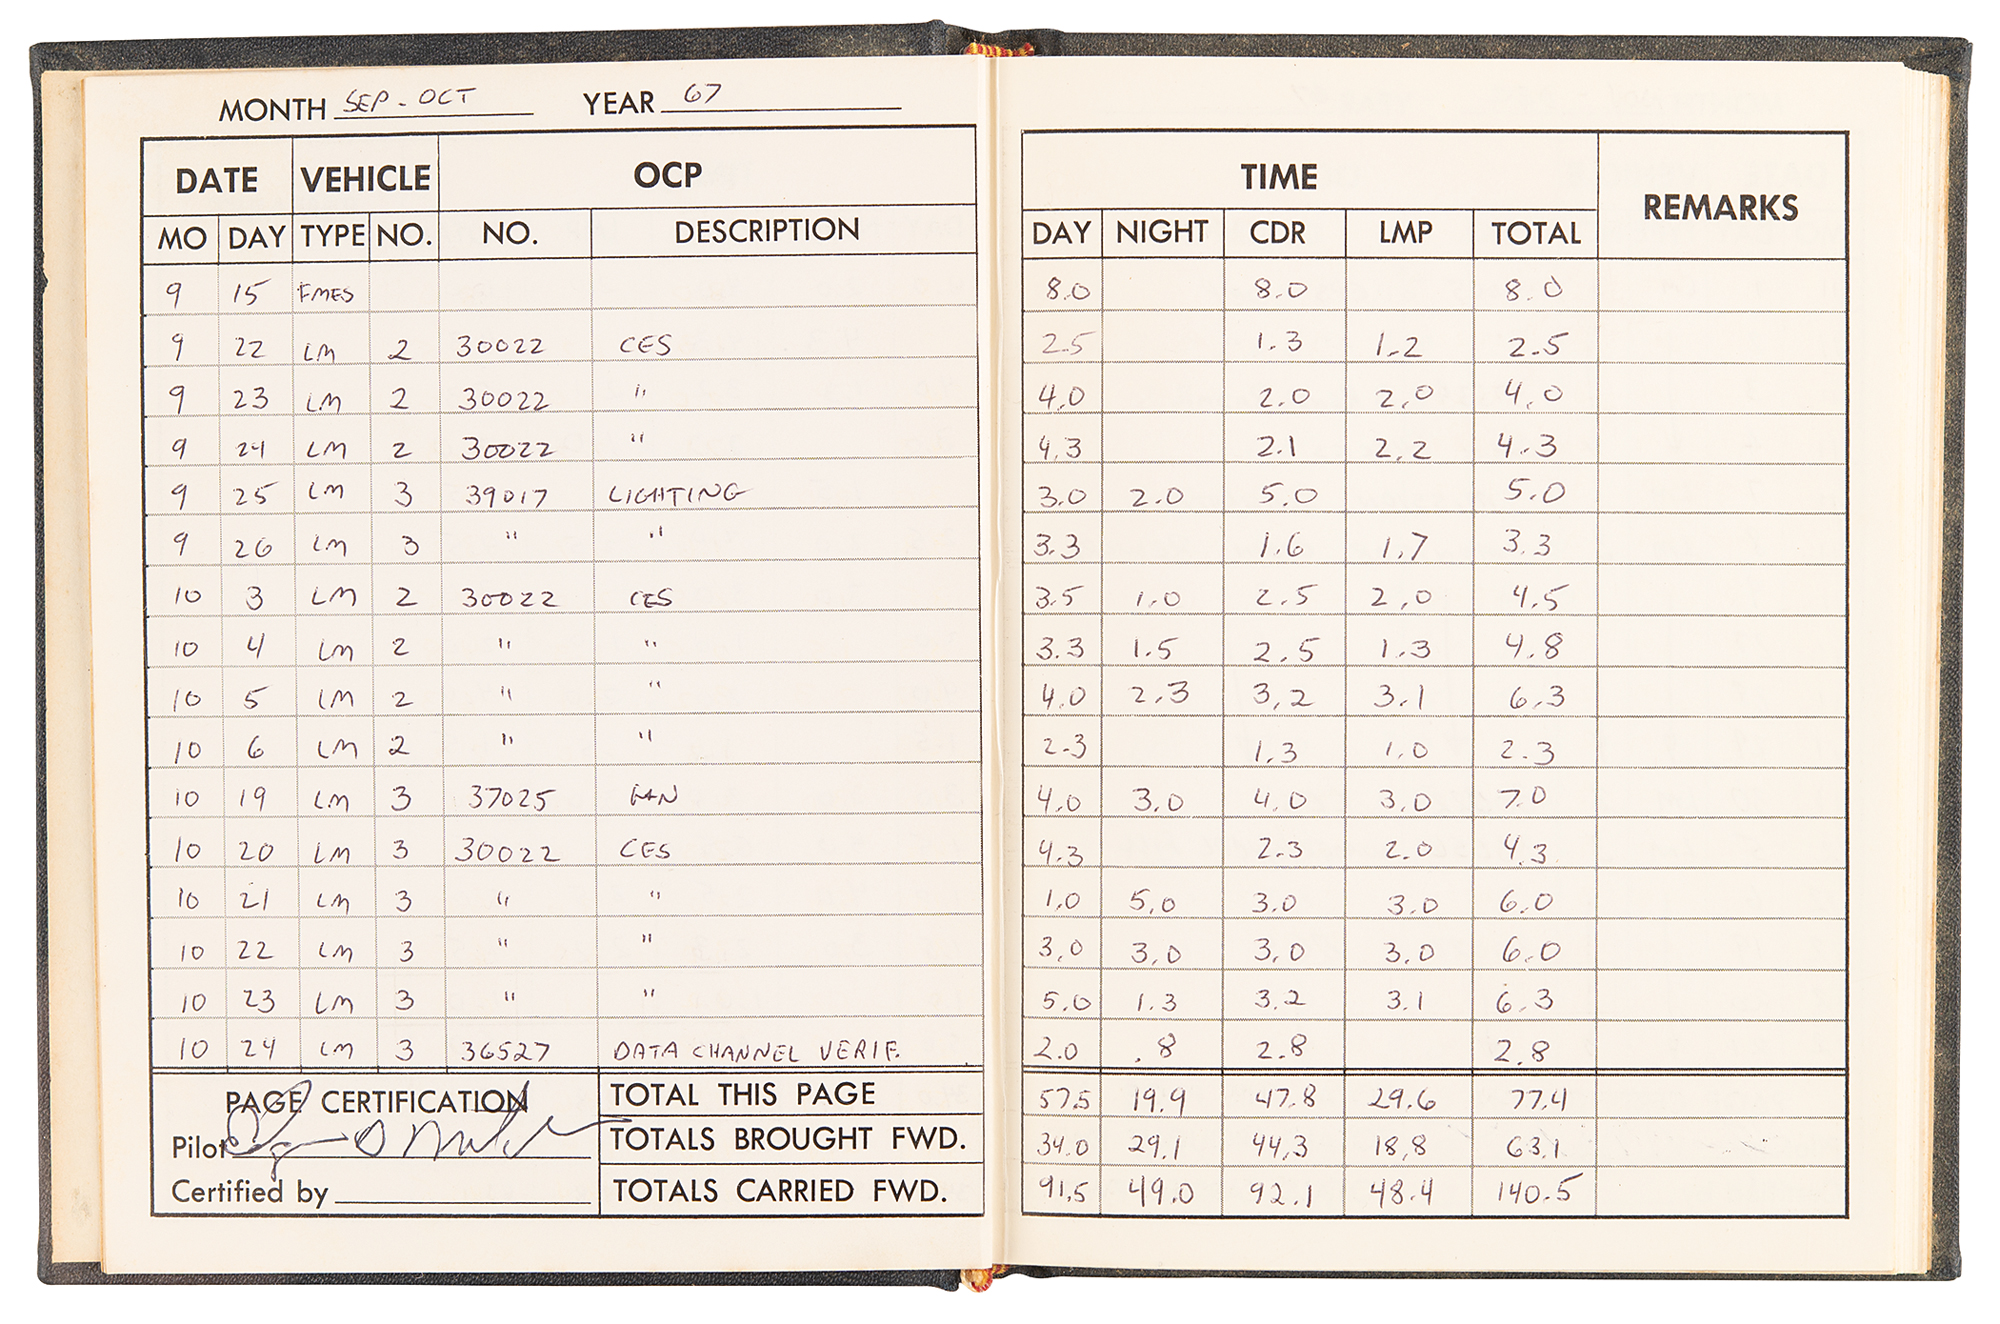 MONTH SEP - OCT YEAR 67
DATE VEHICLE OCP TIME REMARKS
MO DAY TYPE NO. NO. DESCRIPTION DAY NIGHT CDR LMP TOTAL
9 15 FMES 8.0 8.0 8.0
9 22 LM 2 30022 CES 2.5 1.3 1.2 2.5
9 23 LM 2 30022 " 4.0 2.0 2.0 4.0
9 24 LM 2 30022 " 4.3 2.1 2.2 4.3
9 25 LM 3 39017 LIGHTING 3.0 2.0 5.0 5.0
9 26 LM 3 " " 3.3 1.6 1.7 3.3
10 3 LM 2 30022 CES 3.5 1.0 2.5 2.0 4.5
10 4 LM 2 " " 3.3 1.5 2.5 1.3 4.8
10 5 LM 2 " " 4.0 2.3 3.2 3.1 6.3
10 6 LM 2 " " 2.3 1.3 1.0 2.3
10 19 LM 3 37025 4.0 3.0 4.0 3.0 7.0
10 20 LM 3 30022 CES 4.3 2.3 2.0 4.3
10 21 LM 3 " " 1.0 5.0 3.0 3.0 6.0
10 22 LM 3 " " 3.0 3.0 3.0 3.0 6.0
10 23 LM 3 " " 5.0 1.3 3.2 3.1 6.3
10 24 LM 3 36527 DATA CHANNEL VERIF. 2.0 .8 2.8 2.8
PAGE CERTIFICATION TOTAL THIS PAGE 57.5 19.9 47.8 29.6 77.4
Pilot TOTALS BROUGHT FWD. 34.0 29.1 44.3 18.8 63.1
Certified by TOTALS CARRIED FWD. 91.5 49.0 92.1 48.4 140.5